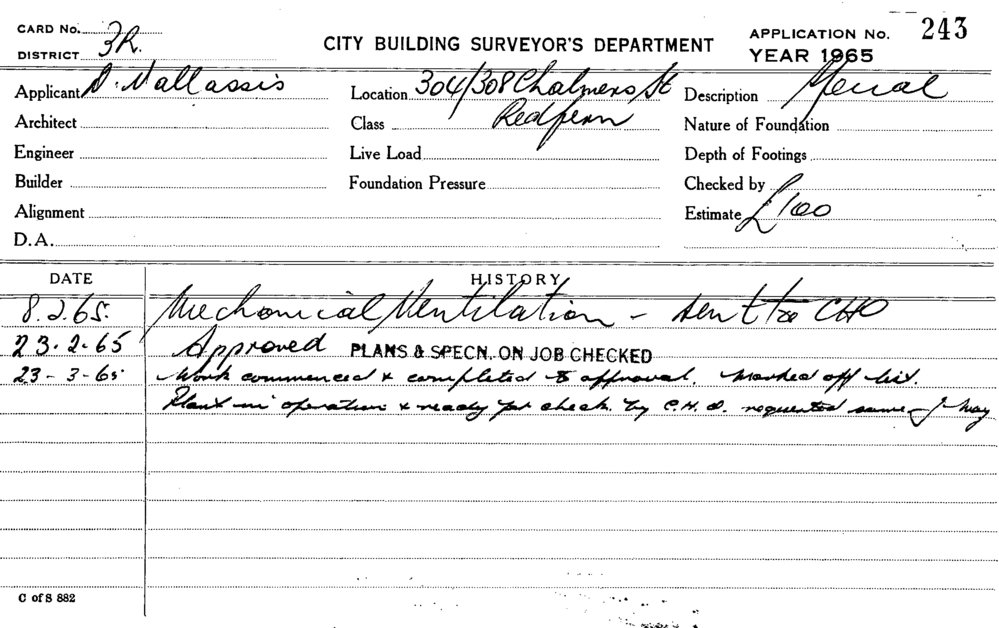 CARD No.
DISTRICT 3R.
CITY BUILDING SURVEYOR'S DEPARTMENT
APPLICATION No. 243
YEAR 1965
Applicant D. Vallassis Location 304/308 Chalmers St Description
Architect Class Redfern Nature of Foundation
Engineer Live Load Depth of Footings
Builder Foundation Pressure Checked by
Alignment Estimate £100
D.A.
DATE HISTORY
8.2.65. Mechanical Ventilation - sent to CHO
23.2.65 Approved PLANS & SPECN. ON JOB CHECKED
23-3-65 Work commenced & completed to approval. Marked off list.
Plant in operation & ready for check. by C.H.O. requested same
C of S 882